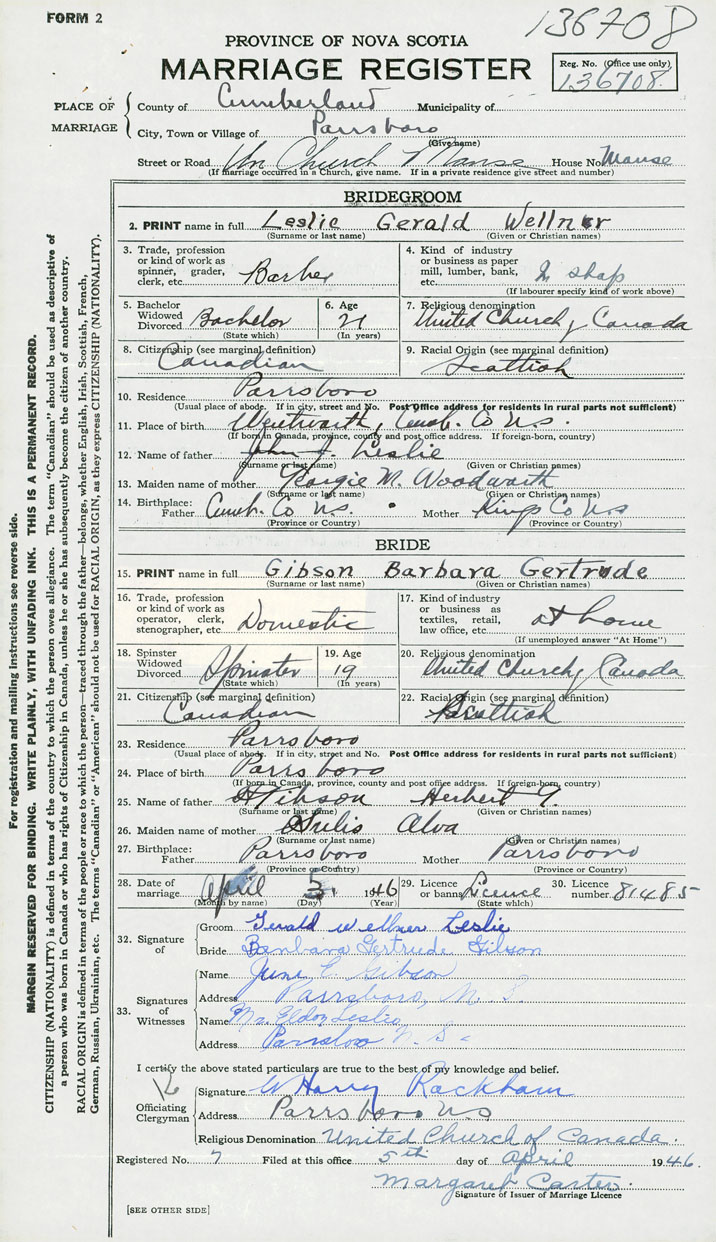 FORM 2
136708
PROVINCE OF NOVA SCOTIA
MARRIAGE REGISTER
Reg. No. (Office use only)
136708
PLACE OF MARRIAGE
County of Cumberland Municipality of
City, Town or Village of Parrsboro
(Give name)
Street or Road Un Church Manse House No. Manse
(If marriage occurred in a Church, give name. If in a private residence give street and number)
BRIDEGROOM
2. PRINT name in full Leslie Gerald Wellner
(Surname or last name) (Given or Christian names)
3. Trade, profession or kind of work as spinner, grader, clerk, etc. Barber
4. Kind of industry or business as paper mill, lumber, bank, etc. In shop
(If labourer specify kind of work above)
5. Bachelor Widowed Divorced Bachelor
(State which)
6. Age 21
(In years)
7. Religious denomination
United Church of Canada
8. Citizenship (see marginal definition)
Canadian
9. Racial Origin (see marginal definition)
Scottish
10. Residence Parrsboro
(Usual place of abode. If in city, street and No. Post Office address for residents in rural parts not sufficient)
11. Place of birth Wentworth, Cumb. Co N.S.
(If born in Canada, province, county and post office address. If foreign-born, country)
12. Name of father John J. Leslie
(Surname or last name) (Given or Christian names)
13. Maiden name of mother M. Woodworth
(Surname or last name) (Given or Christian names)
14. Birthplace: Father Cumb. Co N.S. Mother Kings Co N.S
(Province or Country) (Province or Country)
BRIDE
15. PRINT name in full Gibson Barbara Gertrude
(Surname or last name) (Given or Christian names)
16. Trade, profession or kind of work as operator, clerk, stenographer, etc. Domestic
17. Kind of industry or business as textiles, retail, law office, etc. at home
(If unemployed answer "At Home")
18. Spinster Widowed Divorced Spinster
(State which)
19. Age 19
(In years)
20. Religious denomination
United Church of Canada
21. Citizenship (see marginal definition)
Canadian
22. Racial Origin (see marginal definition)
Scottish
23. Residence Parrsboro
(Usual place of abode. If in city, street and No. Post Office address for residents in rural parts not sufficient)
24. Place of birth Parrsboro
(If born in Canada, province, county and post office address. If foreign-born, country)
25. Name of father Gibson Herbert Y.
(Surname or last name) (Given or Christian names)
26. Maiden name of mother Alva
(Surname or last name) (Given or Christian names)
27. Birthplace: Father Parrsboro Mother Parrsboro
(Province or Country) (Province or Country)
28. Date of marriage April 5 1946
(Month by name) (Day) (Year)
29. Licence or banns Licence
(State which)
30. Licence number 81485
32. Signature of
Groom Gerald Wellner Leslie
Bride Barbara Gertrude Gibson
33. Signatures of Witnesses
Name June E Gibson
Address Parrsboro, N. S.
Name Mrs. Eldon Leslie
Address Parrsboro N. S.
I certify the above stated particulars are true to the best of my knowledge and belief.
Officiating Clergyman
Signature W Harry Rackham
Address Parrsboro N S
Religious Denomination United Church of Canada.
Registered No. 7 Filed at this office 5th day of April 1946.
Margaret Carter
Signature of Issuer of Marriage Licence
[SEE OTHER SIDE]
For registration and mailing instructions see reverse side.
MARGIN RESERVED FOR BINDING. WRITE PLAINLY, WITH UNFADING INK. THIS IS A PERMANENT RECORD.
CITIZENSHIP (NATIONALITY) is defined in terms of the country to which the person owes allegiance. The term "Canadian" should be used as descriptive of
a person who was born in Canada or who has rights of Citizenship in Canada, unless he or she has subsequently become the citizen of another country.
RACIAL ORIGIN is defined in terms of the people or race to which the person—traced through the father—belongs, whether English, Irish, Scottish, French,
German, Russian, Ukrainian, etc. The terms "Canadian" or "American" should not be used for RACIAL ORIGIN, as they express CITIZENSHIP (NATIONALITY).